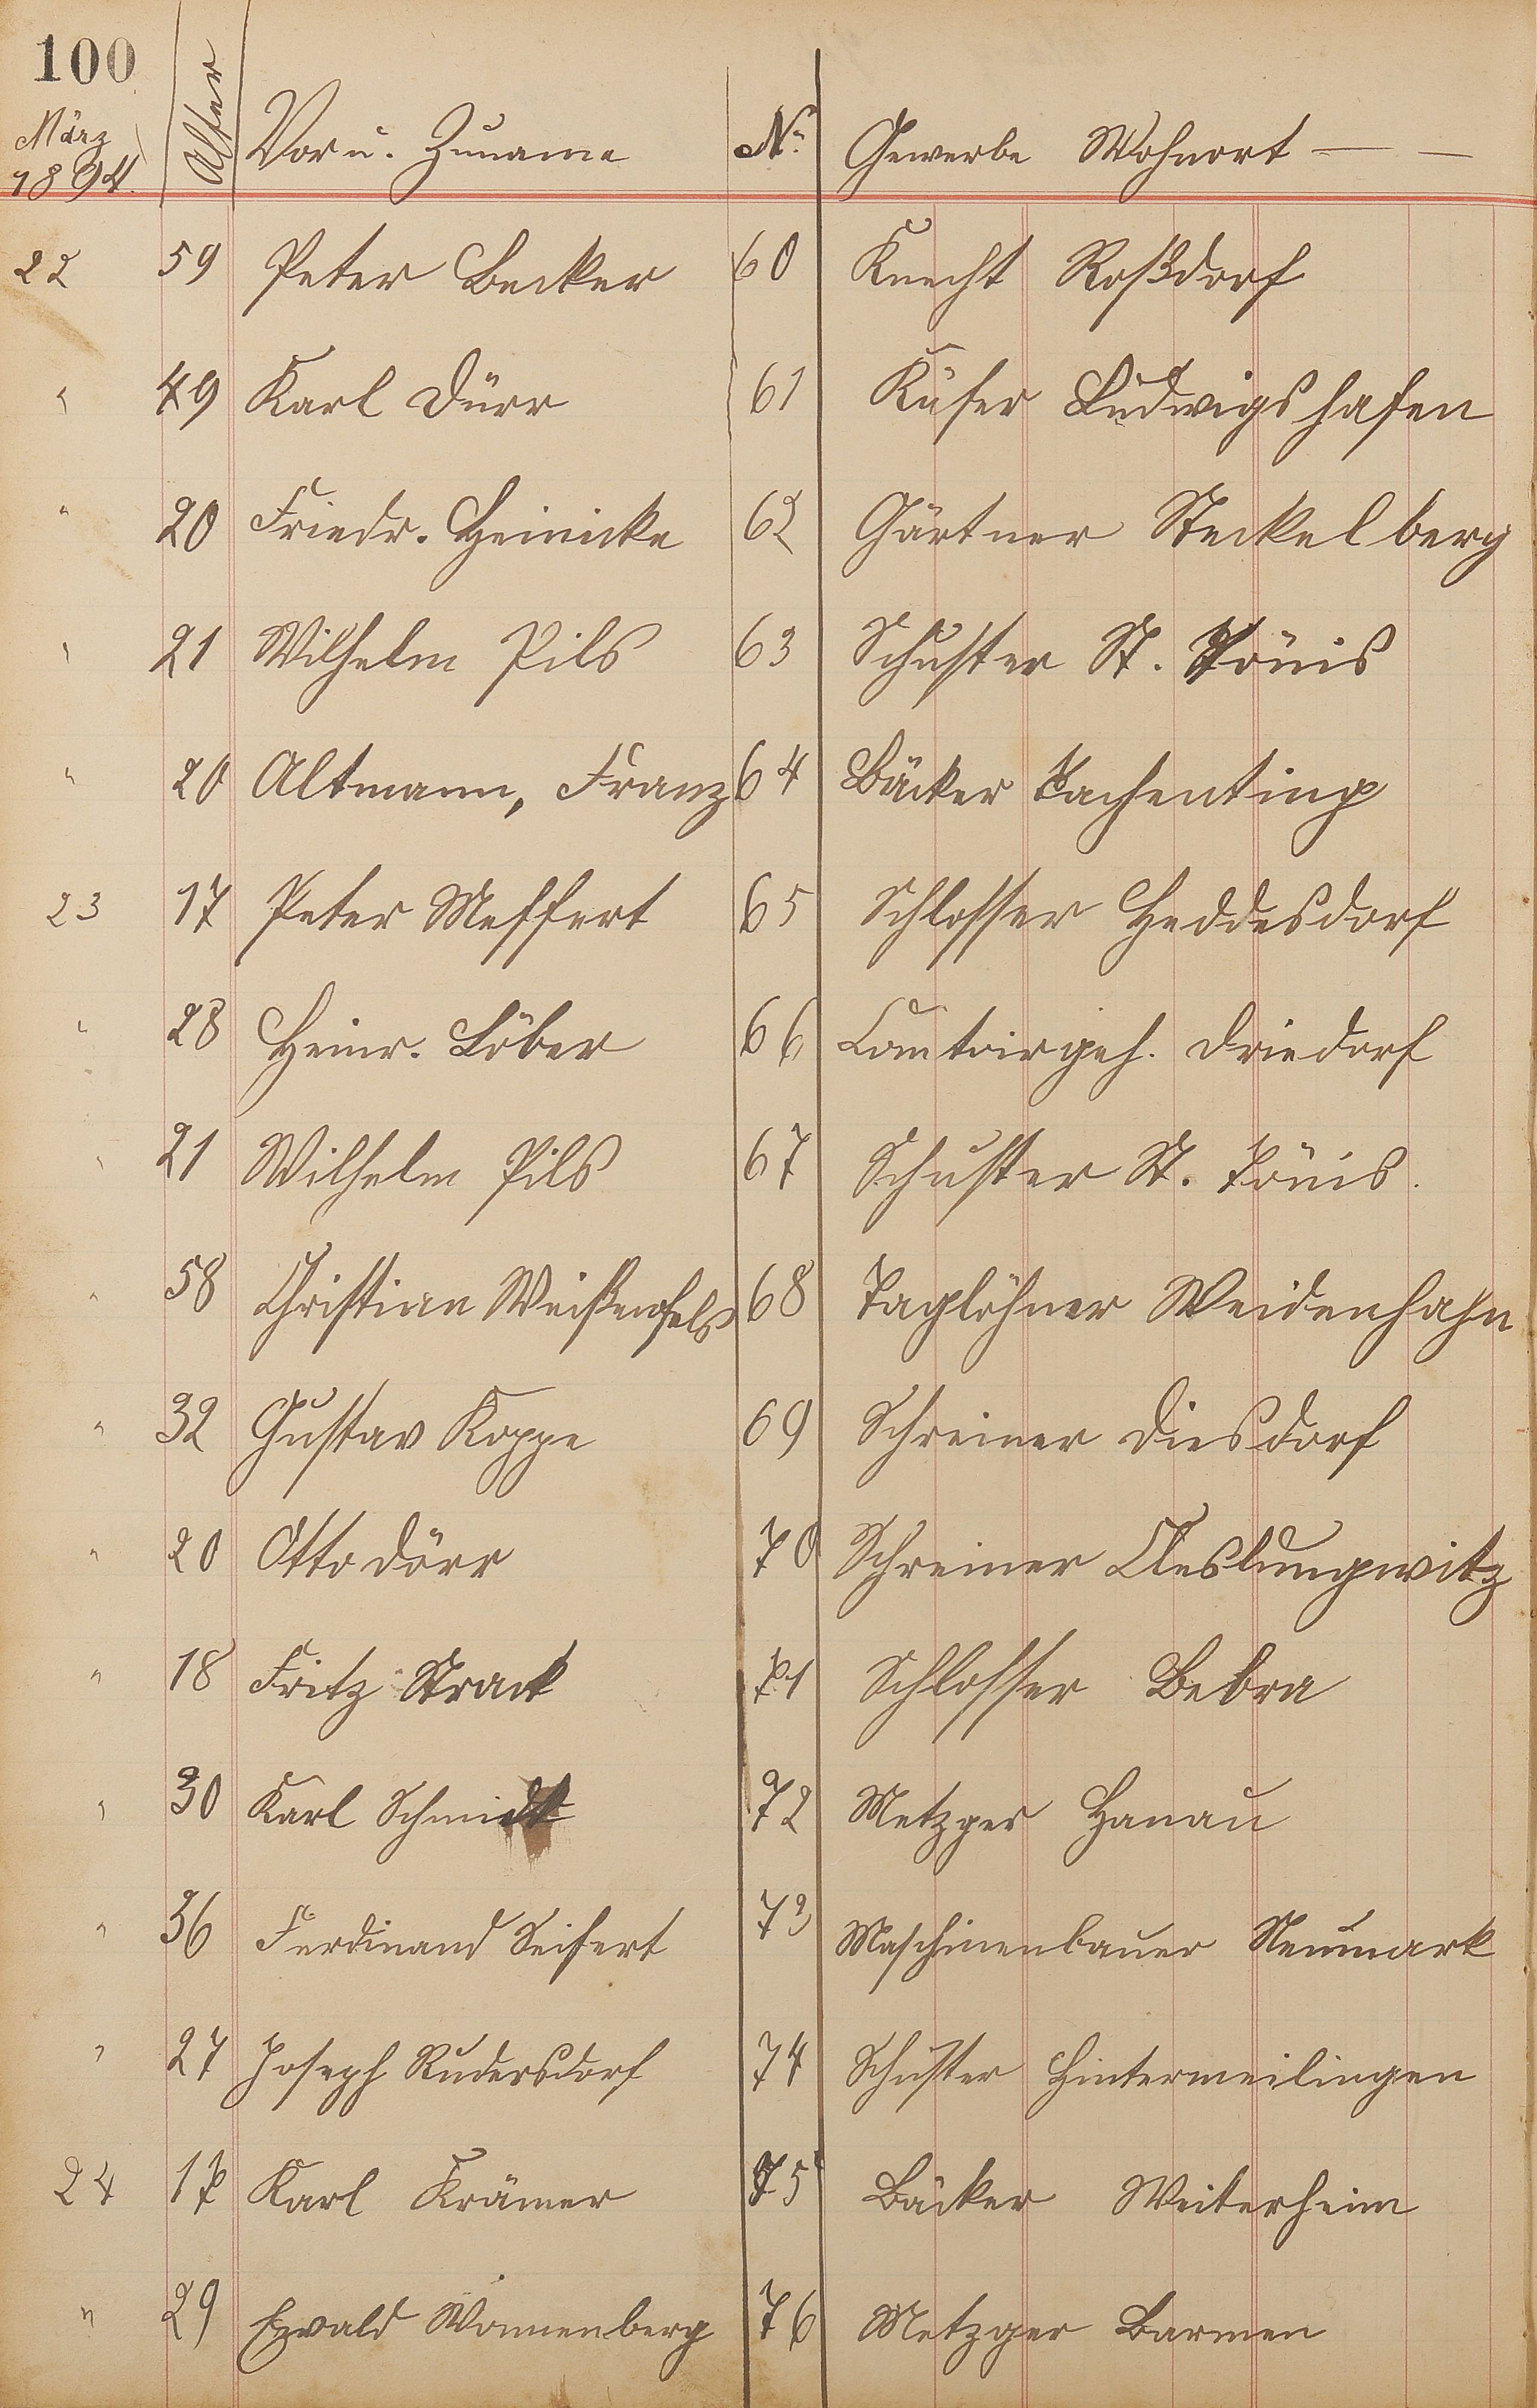 100
März 1894. Alter Vor u. Zuname No. Gewerbe Wohnort — —
22 59 Peter Becker 60 Knecht Roßdorf
" 49 Karl Dürr 61 Küfer Ludwigshafen
" 20 Friedr. Heinicke 62 Gärtner Steckelberg
" 21 Wilhelm Pils 63 Schuster St. Tönis
" 20 Altmann, Franz 64 Bäcker Tachenting
23 17 Peter Meffert 65 Schlosser Heddesdorf
" 28 Heinr. Löber 66 Comtoirgeh. Driedorf
" 21 Wilhelm Pils 67 Schuster St. Tönis.
" 58 Christian Weißenfels 68 Taglöhner Weidenhahn
" 32 Gustav Koppe 69 Schreiner Diesdorf
" 20 Otto Dörr 70 Schreiner
" 18 Fritz Strack 71 Schlosser Bebra
" 30 Karl Schmidt 72 Metzger Hanau
" 36 Ferdinand Seifert 73 Maschinenbauer Neumark
" 27 Joseph Rudersdorf 74 Schuster Hintermeilingen
24 17 Karl Krämer 75 Bäcker Weiterheim
" 29 Ewald Wonnenberg 76 Metzger Barmen